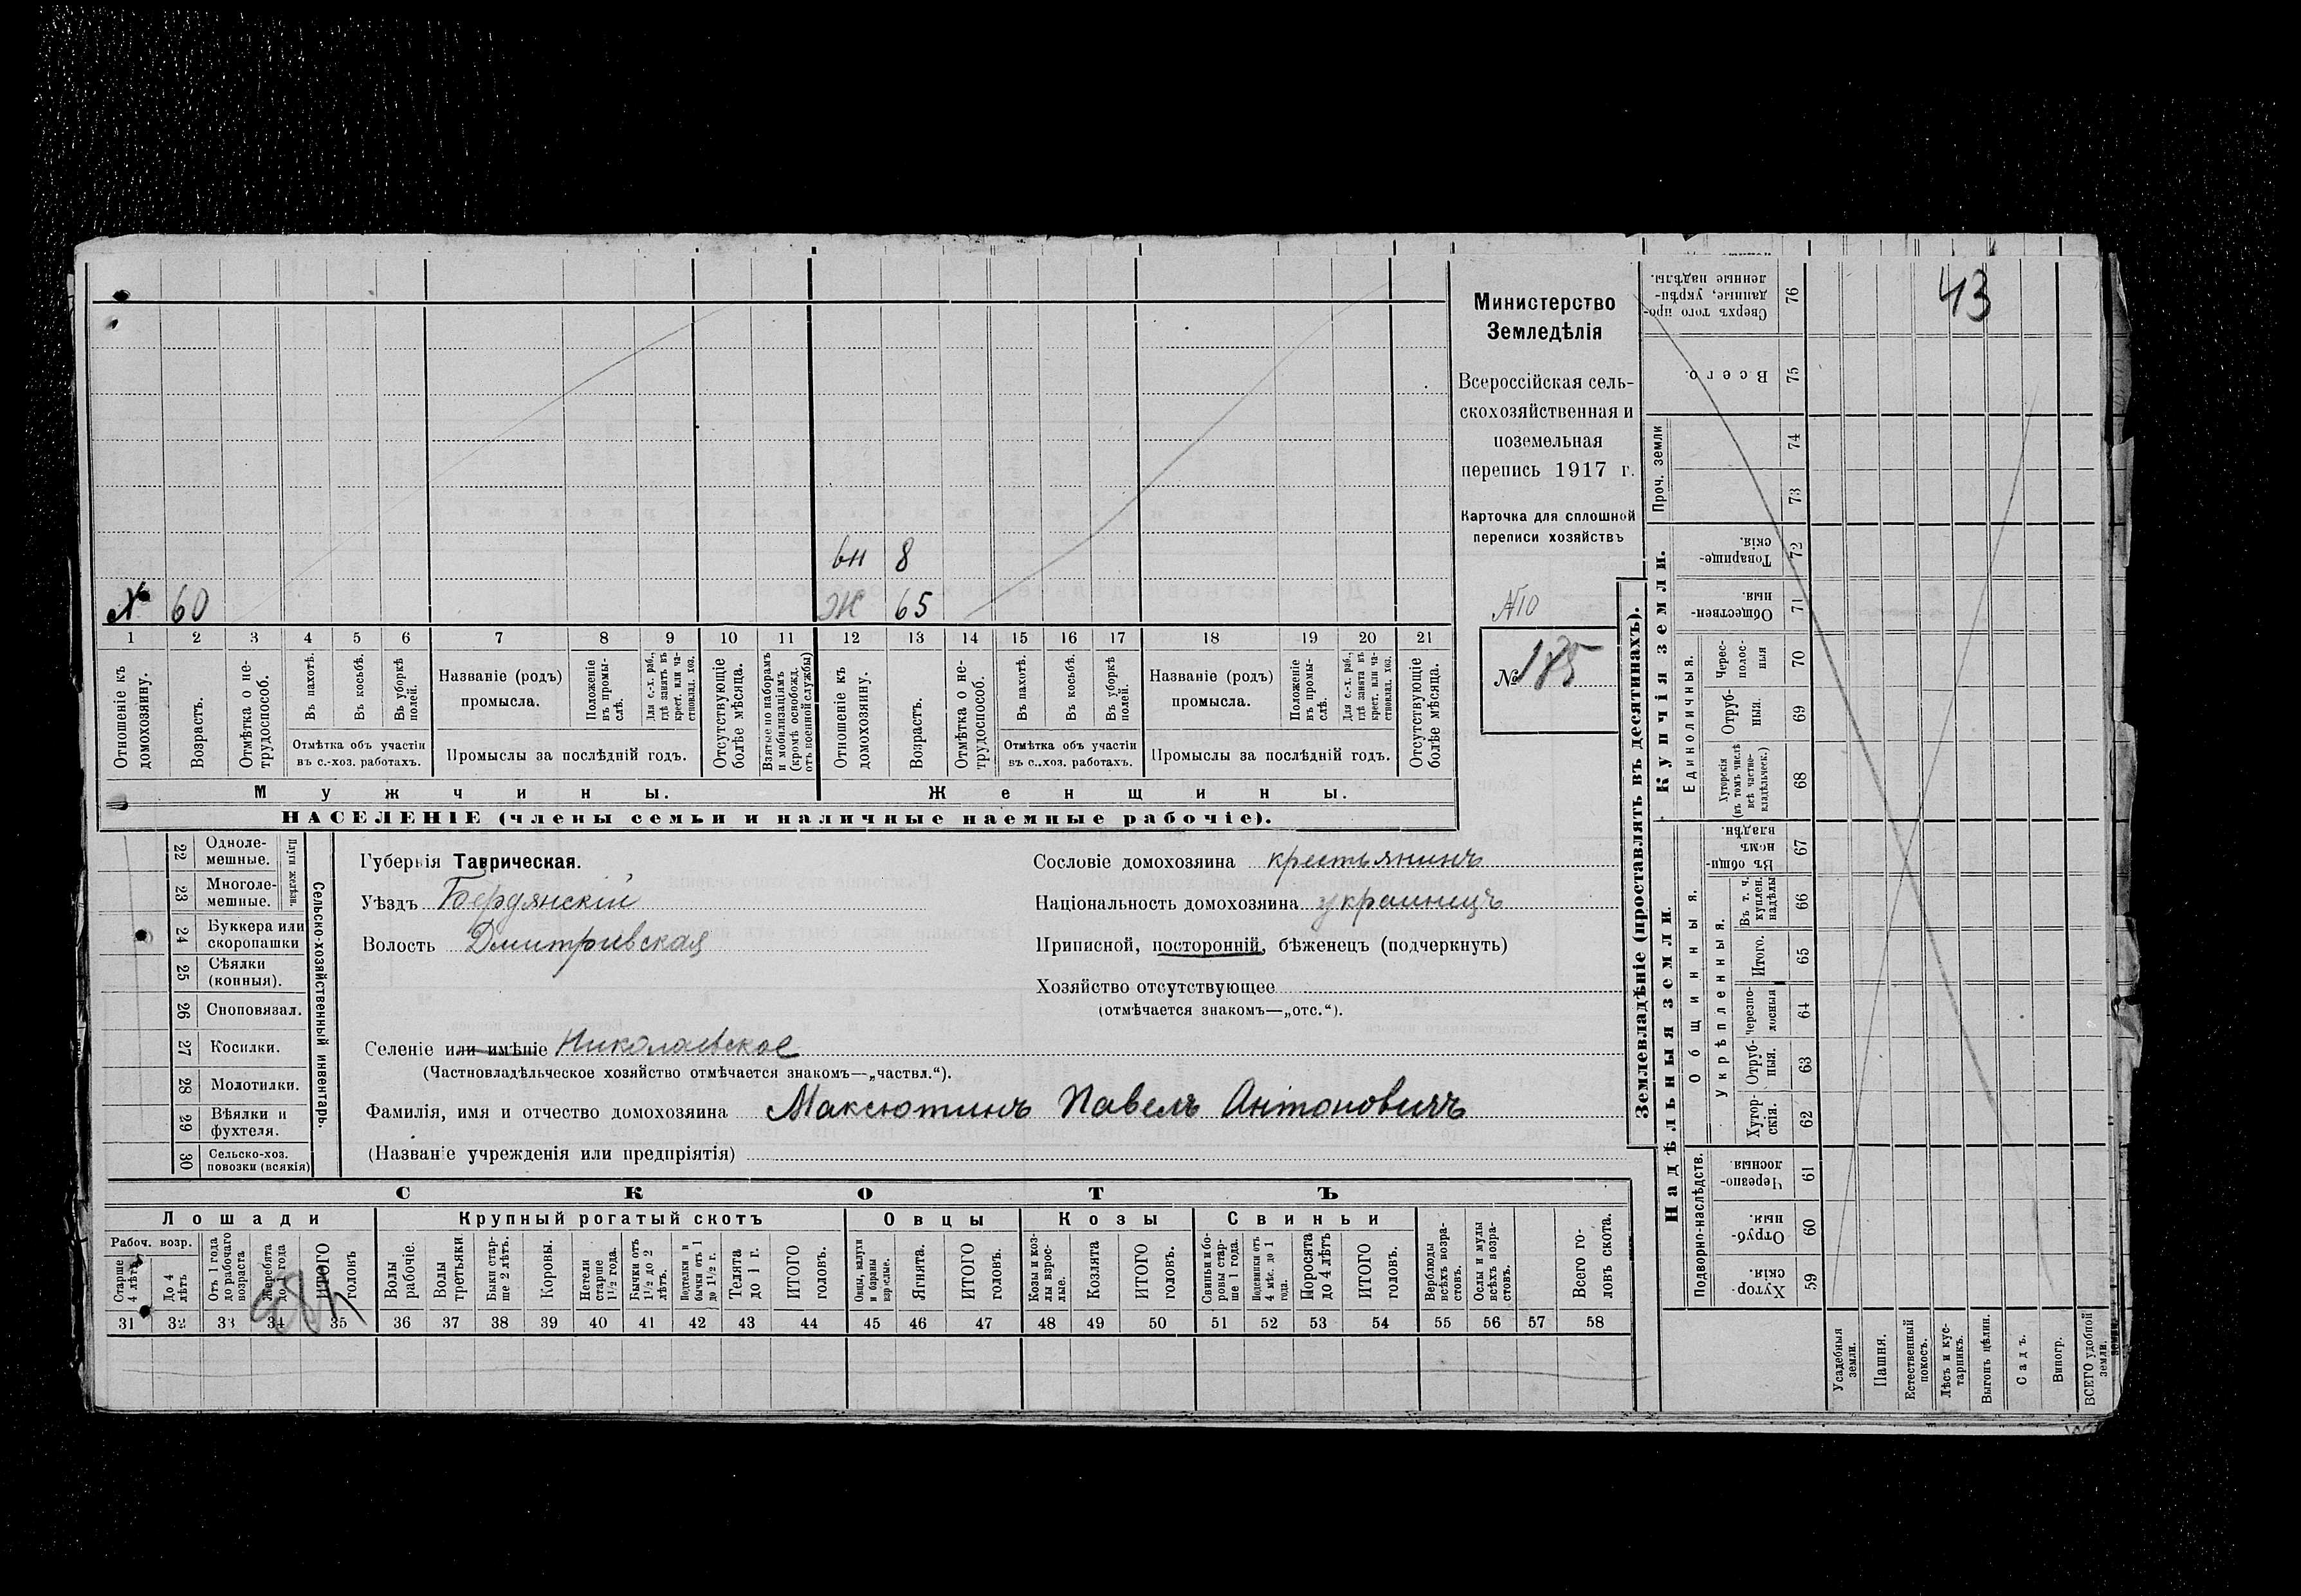 43
Министерство
Земледѣлія
Всероссійская сель-
скохозяйственная и
поземельная
перепись 1917 г.
Карточка для сплошной
переписи хозяйствъ
№10
№ 185
вн 8
Х 60 Ж 65
1 2 3 4 5 6 7 8 9 10 11 12 13 14 15 16 17 18 19 20 21
Отношеніе къ домохозяину.
Возрастъ.
Отмѣтка о не-трудоспособ.
Въ пахотѣ.
Въ косьбѣ.
Въ уборкѣ полей.
Отмѣтка объ участіи
въ с.-хоз. работахъ.
Названіе (родъ)
промысла.
Положеніе въ промы-слѣ.
Для с.-х. раб., гдѣ занятъ въ крест. или ча-стновлад. хоз.
Промыслы за послѣдній годъ.
Отсутствующіе болѣе мѣсяца.
Взятые по наборамъ и мобилизаціямъ (кромѣ освобожд. отъ военной службы)
Отношеніе къ домохозяину.
Возрастъ.
Отмѣтка о не-трудоспособ.
Въ пахотѣ.
Въ косьбѣ.
Въ уборкѣ полей.
Отмѣтка объ участіи
въ с.-хоз. работахъ.
Названіе (родъ)
промысла.
Положеніе въ промы-слѣ.
Для с.-х. раб., гдѣ занята въ крест. или ча-стновлад. хоз.
Промыслы за послѣдній годъ.
Отсутствующіе болѣе мѣсяца.
Мужчины. Женщины.
НАСЕЛЕНІЕ (члены семьи и наличные наемные рабочіе).
22 Одноле-мешные.
23 Многоле-мешные.
Плуги желѣзн.
24 Буккера или скоропашки
25 Сѣялки (конныя).
26 Сноповязал.
27 Косилки.
28 Молотилки.
29 Вѣялки и фухтеля.
30 Сельско-хоз. повозки (всякія)
Сельско-хозяйственный инвентарь.
Губернія Таврическая.
Уѣздъ Бердянскій
Волость Дмитріевская
Сословіе домохозяина крестьянинъ
Національность домохозяина украинецъ
Приписной, посторонній, бѣженецъ (подчеркнуть)
Хозяйство отсутствующее
(отмѣчается знакомъ—„отс.“).
Селеніе или имѣніе Николаевское
(Частновладѣльческое хозяйство отмѣчается знакомъ—„частвл.“).
Фамилія, имя и отчество домохозяина Максютинъ Павелъ Антоновичъ
(Названіе учрежденія или предпріятія)
СКОТЪ
Лошади Крупный рогатый скотъ Овцы Козы Свиньи
Рабоч. возр.
Старше 4 лѣтъ
До 4 лѣтъ
Отъ 1 года до рабочаго возраста
Жеребята до 1 года
ИТОГО головъ
Волы рабочіе.
Волы третьяки.
Быки стар-ше 2 лѣтъ.
Коровы.
Нетели старше 1½ года.
Бычки отъ 1½ до 2 лѣтъ.
Подтелки и бычки отъ 1 до 1½ г.
Телята до 1 г.
ИТОГО головъ.
Овцы, валухи и бараны взрослые.
Ягнята.
ИТОГО головъ.
Козы и коз-лы взрос-лые.
Козлята
ИТОГО головъ.
Свиньи и бо-ровы стар-ше 1 года.
Подсвинки отъ 4 мѣс. до 1 года.
Поросята до 4 лѣтъ
ИТОГО головъ.
Верблюды всѣхъ возра-стовъ.
Ослы и мулы всѣхъ возра-стовъ.
Всего го-ловъ скота.
31 32 33 34 35 36 37 38 39 40 41 42 43 44 45 46 47 48 49 50 51 52 53 54 55 56 57 58
Землевладѣніе (проставлять въ десятинахъ).
Сверхъ того про-данные, укрѣп-ленные надѣлы. 76
Всего. 75
Проч. земли
74
73
Купчія земли.
Товарище-скія. 72
Обществен-ныя. 71
Единоличныя.
Черес-полос-ныя 70
Отруб-ныя. 69
Хуторскія (въ томъ числѣ всѣ частно-владѣльческ.) 68
Надѣльныя земли.
Общинныя.
Въ общи-номъ владѣн. 67
Укрѣпленныя.
Въ т. ч. куплен. надѣлы 66
Итого. 65
Черезпо-лосныя 64
Отруб-ныя. 63
Хутор-скія. 62
Подворно-наслѣдств.
Черезпо-лосныя. 61
Отруб-ныя. 60
Хутор-скія. 59
Усадебныя земли.
Пашня.
Естественный покосъ.
Лѣсъ и кус-тарникъ.
Выгонъ цѣлин.
Садъ.
Виногр.
ВСЕГО удобной земли.